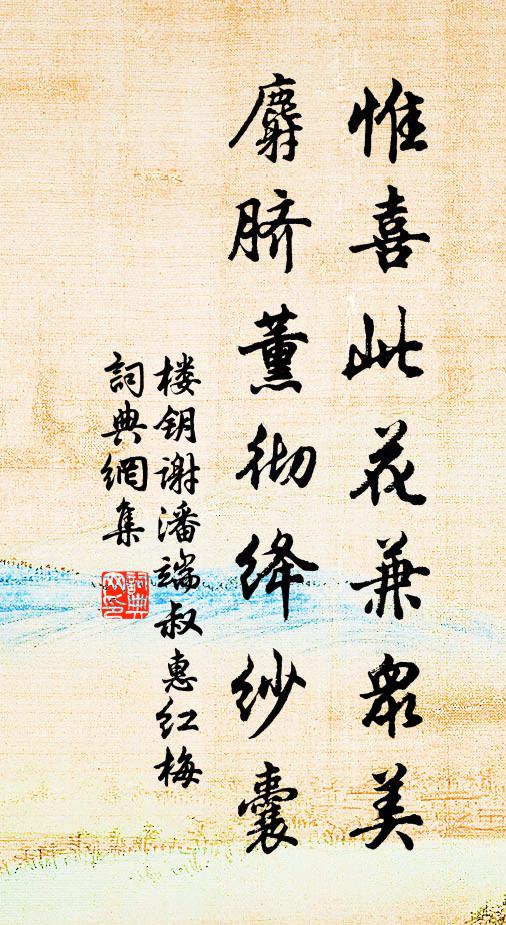 惟喜此花兼眾美
麝脐薰彻绛纱囊
楼钥谢潘端叔惠红梅
詞典網集